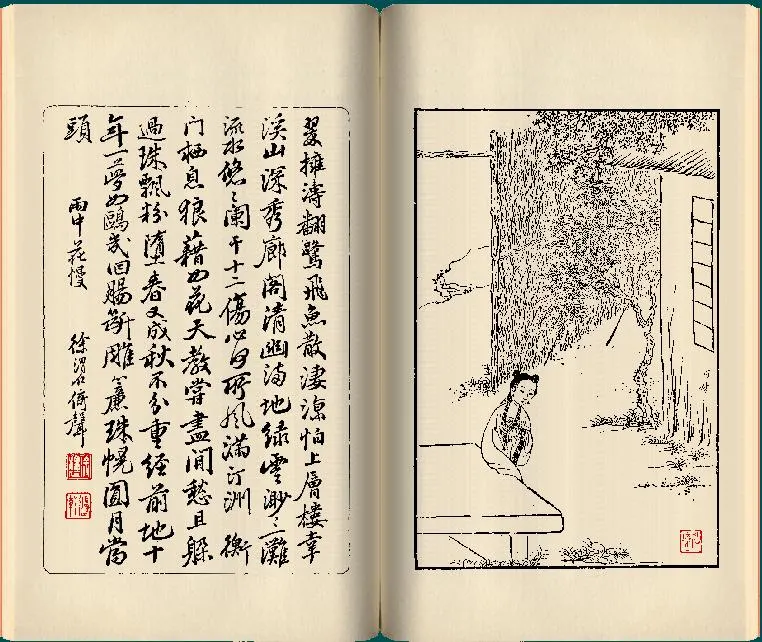 翠擁濤翻鷺飛魚散淒涼怕上層樓幸
溪山深秀廊閣清幽满地緑雲渺々一灘
流水悠々闌干十二傷心何所風滿汀洲 衡
门栖息狼藉如花天教嘗盡閒愁且躲
過珠飄粉墮春又成秋不分重經前地十
年一夢如鷗幾回腸斷雕簷珠幌圓月當
頭
雨中花慢 徐渭仁倚聲